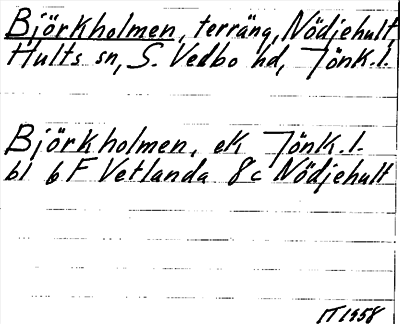 Björkholmen, terräng, Nödjehult,
Hults sn, S. Vedbo hd, Jönk.l.
Björkholmen, ek Jönk.l.
bl 6 F Vetlanda 8c Nödjehult
IT 1958